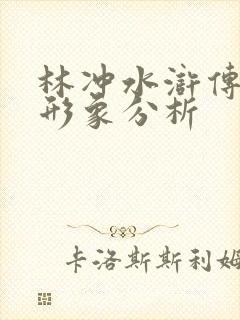 林冲水滸傳
形象分析
卡洛斯斯利姆